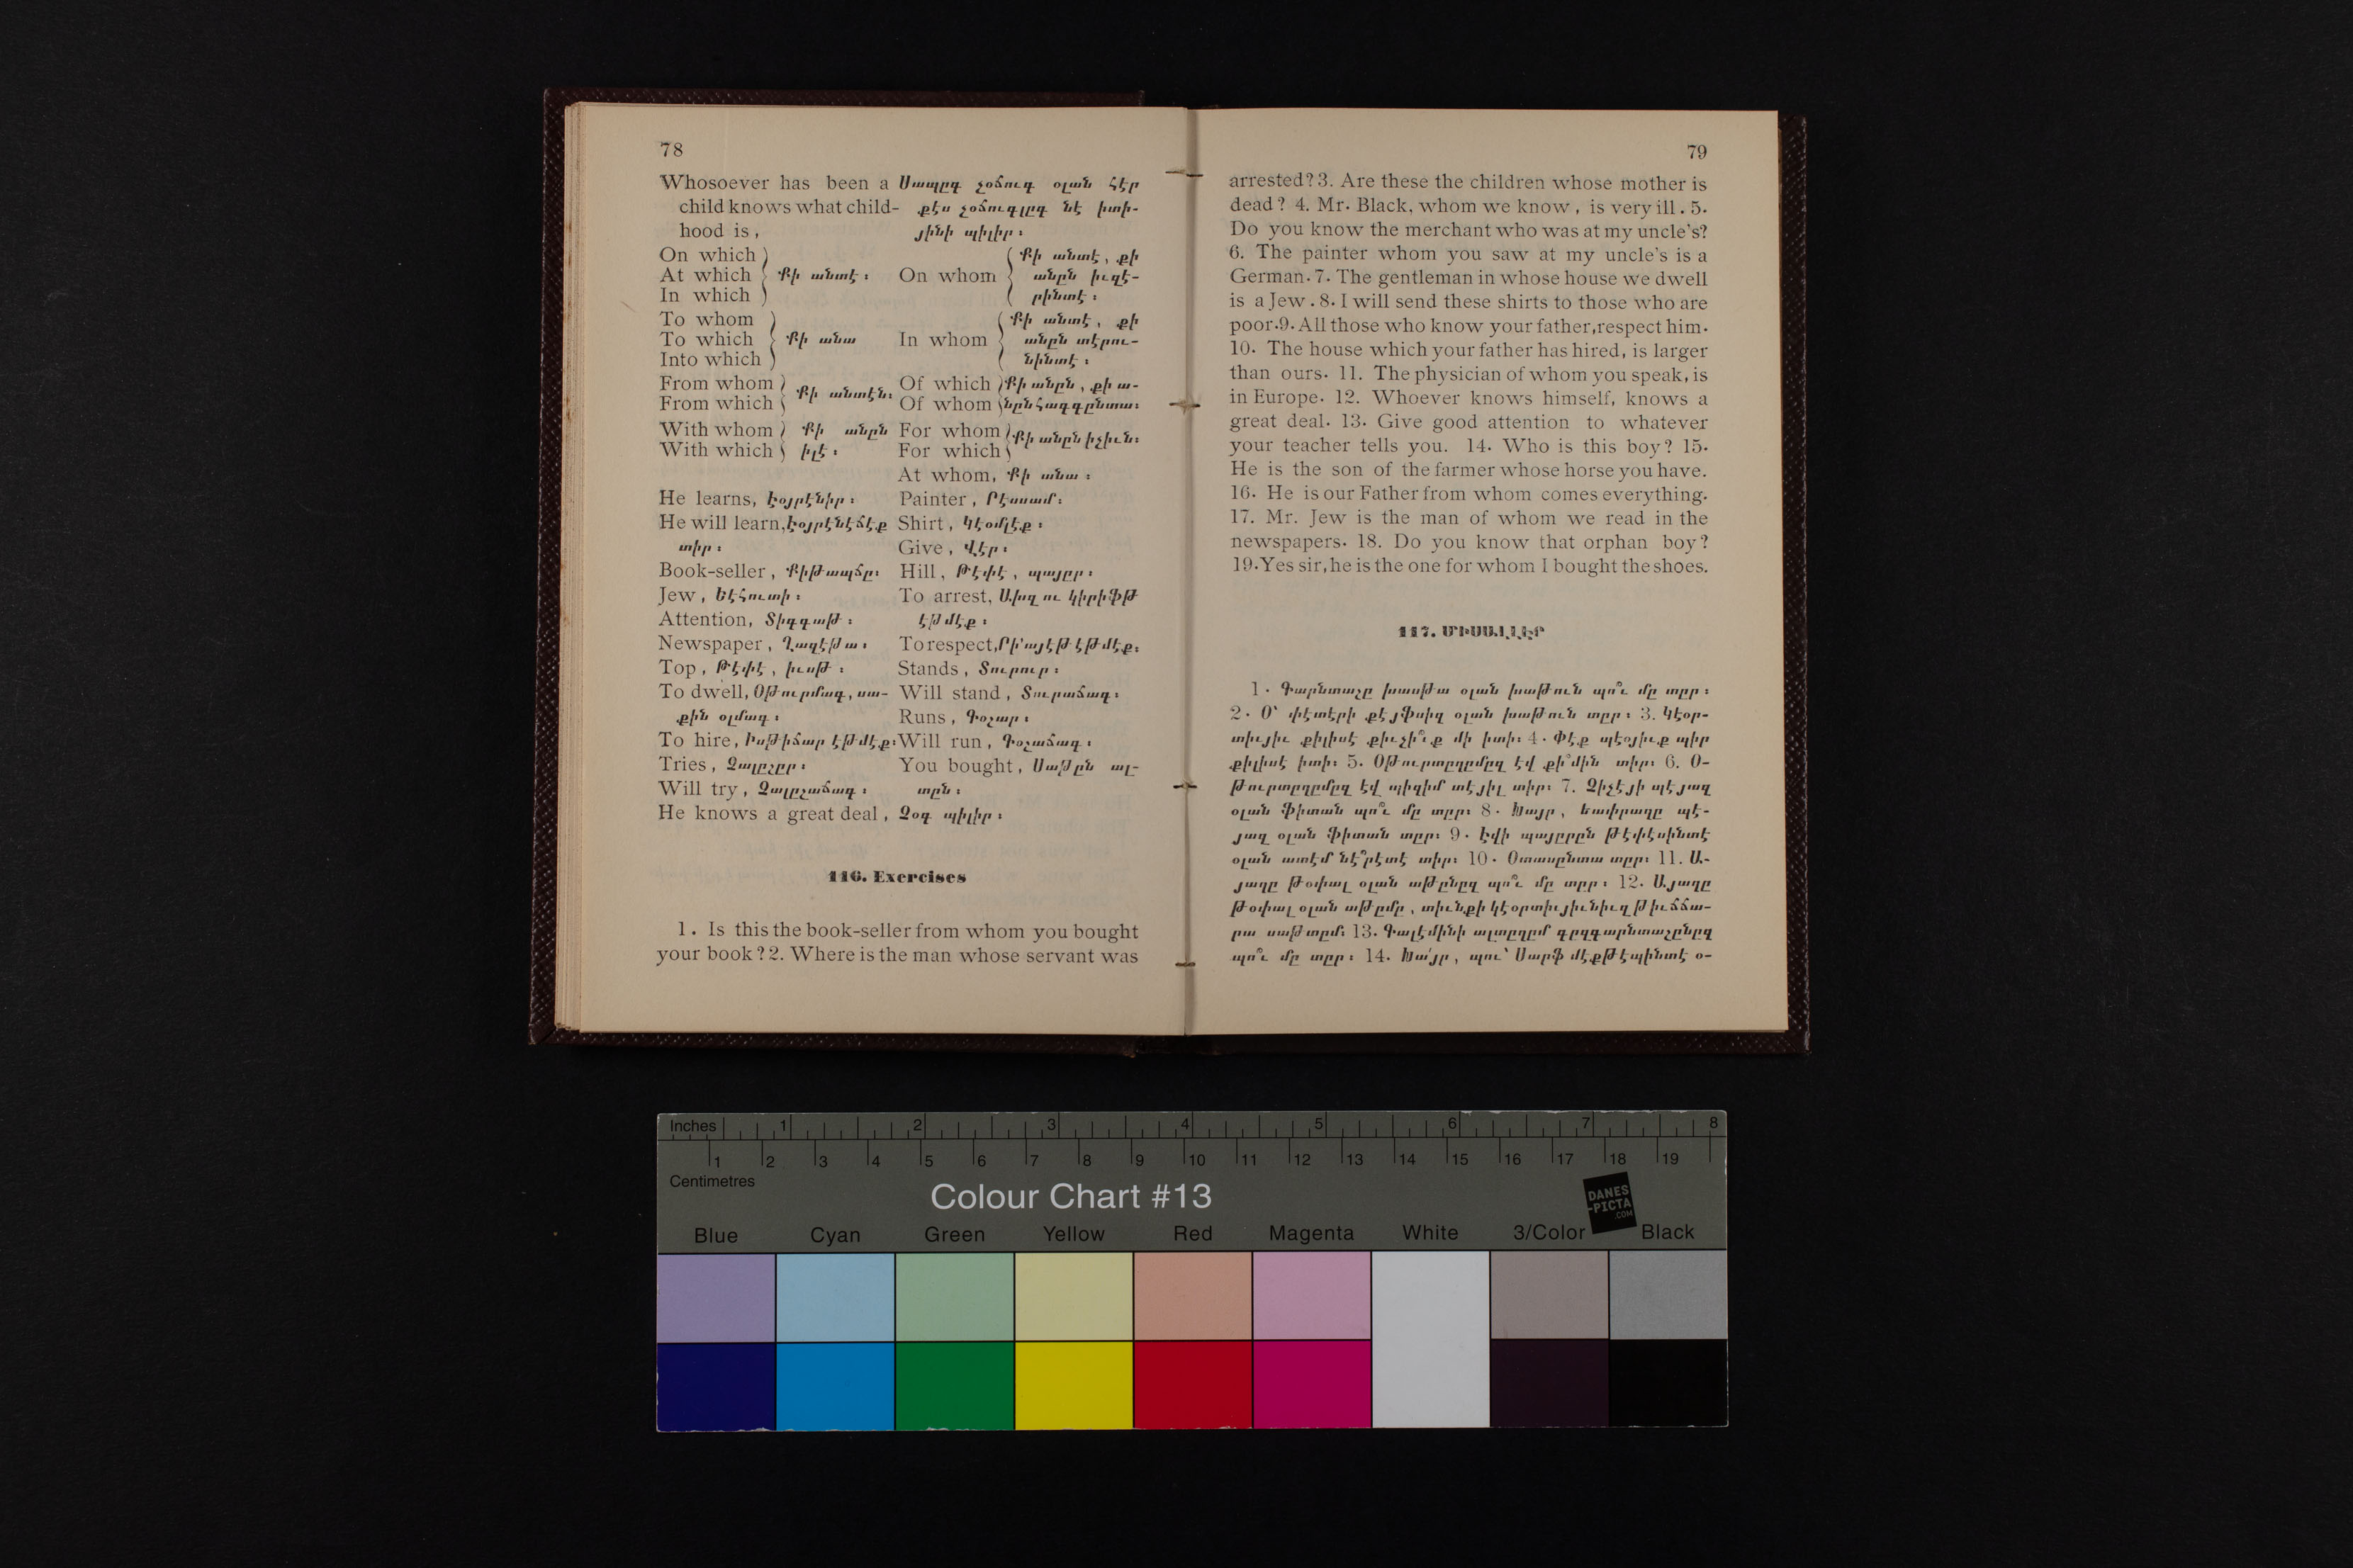 78
Whosoever has been a Սապըգ չօճուգ օլան հէր
child knows what child- քէս չօճուգլըգ նէ իտի-
hood is, յինի պիլիր։
On which
At which Քի անտէ։
In which
On whom Քի անտէ, քի
անըն իւզէ-
րինտէ։
To whom
To which Քի անա
Into which
In whom Քի անտէ, քի
անըն տէրու-
նինտէ։
From whom
From which Քի անտէն։
Of which Քի անըն, քի ա-
Of whom նըն հագգընտա։
With whom Քի անըն
With which իլէ։
For whom Քի անըն իչիւն։
For which
At whom, Քի անա։
He learns, Էօյրէնիր։
He will learn, Էօյրէնէճէք
տիր։
Book-seller, Քիթապճը։
Jew, Եէհուտի։
Attention, Տիգգաթ։
Newspaper, Ղազէթա։
Top, Թէփէ, իւսթ։
To dwell, Օթուրմագ, սա-
քին օլմագ։
To hire, Իսթիճար էթմէք։
Tries, Չալըշըր։
Will try, Չալըշաճագ։
He knows a great deal, Չօգ պիլիր։
Painter, Րէսսամ։
Shirt, Կէօմլէք։
Give, Վէր։
Hill, Թէփէ, պայըր։
To arrest, Ախզ ու կիրիֆթ
էթմէք։
To respect, Րի՛այէթ էթմէք։
Stands, Տուրուր։
Will stand, Տուրաճագ։
Runs, Գօշար։
Will run, Գօշաճագ։
You bought, Սաթըն ալ-
տըն։
116. Exercises
1. Is this the book-seller from whom you bought
your book? 2. Where is the man whose servant was
79
arrested? 3. Are these the children whose mother is
dead? 4. Mr. Black, whom we know, is very ill. 5.
Do you know the merchant who was at my uncle's?
6. The painter whom you saw at my uncle's is a
German. 7. The gentleman in whose house we dwell
is a Jew. 8. I will send these shirts to those who are
poor. 9. All those who know your father, respect him.
10. The house which your father has hired, is larger
than ours. 11. The physician of whom you speak, is
in Europe. 12. Whoever knows himself, knows a
great deal. 13. Give good attention to whatever
your teacher tells you. 14. Who is this boy? 15.
He is the son of the farmer whose horse you have.
16. He is our Father from whom comes everything.
17. Mr. Jew is the man of whom we read in the
newspapers. 18. Do you know that orphan boy?
19. Yes sir, he is the one for whom I bought the shoes.
117. ՄԻՍԱԼԼԷՐ
1. Գարնտաշը խասթա օլան խաթուն պո՞ւ մը տըր։
2. Օ՝ փէտէրի քէյֆսիզ օլան խաթուն տըր։ 3. Կէօր-
տիւյիւ քիլիսէ քիւչի՞ւք մի իտի։ 4. Փէք պէօյիւք պիր
քիլիսէ իտի։ 5. Օթուրտըղըմըզ էվ քի՞մին տիր։ 6. Օ-
թուրտըղըմըզ էվ պիզիմ տէյիլ տիր։ 7. Չիչէյի պէյազ
օլան ֆիտան պո՞ւ մը տըր։ 8. Խայր, եափրաղը պէ-
յազ օլան ֆիտան տըր։ 9. Էվի պայըրըն թէփէսինտէ
օլան ատէմ նէ՞րէտէ տիր։ 10. Օտասընտա տըր։ 11. Ա-
յաղը թօփալ օլան աթընըզ պո՞ւ մը տըր։ 12. Այաղը
թօփալ օլան աթըմը, տիւնքի կէօրտիւյիւնիւզ թիւճճա-
րա սաթտըմ։ 13. Գալէմինի ալտըղըմ գըզգարնտաշընըզ
պո՞ւ մը տըր։ 14. Խա՛յր, պու՝ Սարֆ մէքթէպինտէ օ-
Inches 1 2 3 4 5 6 7 8
1 2 3 4 5 6 7 8 9 10 11 12 13 14 15 16 17 18 19
Centimetres
Colour Chart #13
DANES
-PICTA
.COM
Blue Cyan Green Yellow Red Magenta White 3/Color Black